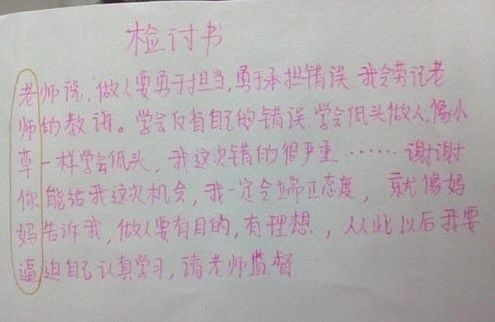 检讨书
老师说，做人要勇于担当，勇于承担错误 我会劳记老
师的教诲。学会反省自己的错误，学会低头做人，像小
草一样学会低头，我这次错的很严重……谢谢
你能给我这次机会，我一定会端正态度，就像妈
妈告诉我，做人要有目的，有理想，从此以后我要
逼迫自己认真学习，请老师监督